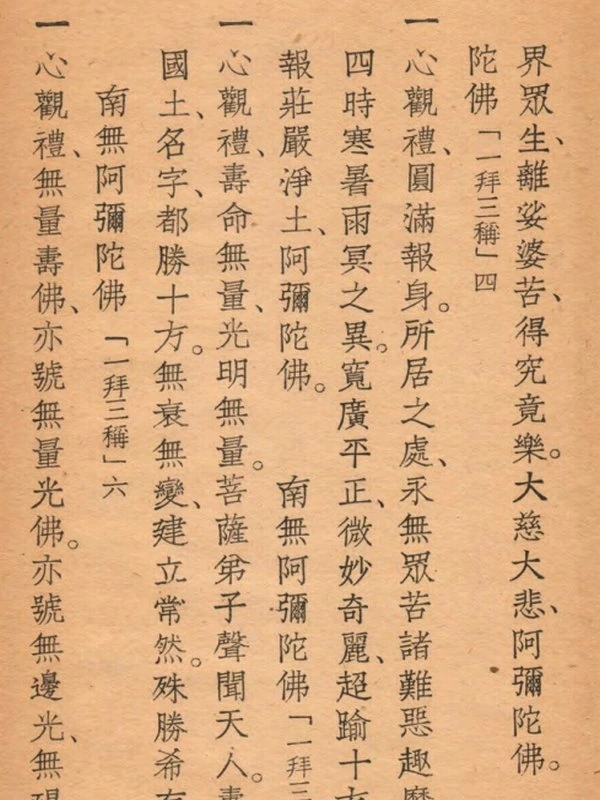 界眾生、離娑婆苦、得究竟樂。大慈大悲、阿彌陀佛。
陀佛「一拜三稱」四
一心觀禮、圓滿報身。所居之處、永無眾苦諸難惡趣
四時寒暑雨冥之異。寬廣平正、微妙奇麗、超踰十
報莊嚴淨土、阿彌陀佛。 南無阿彌陀佛「一拜三
一心觀禮、壽命無量、光明無量。菩薩弟子聲聞天人。
國土、名字、都勝十方。無衰無變、建立常然。殊勝希
南無阿彌陀佛「一拜三稱」六
一心觀禮、無量壽佛、亦號無量光佛。亦號無邊光、無